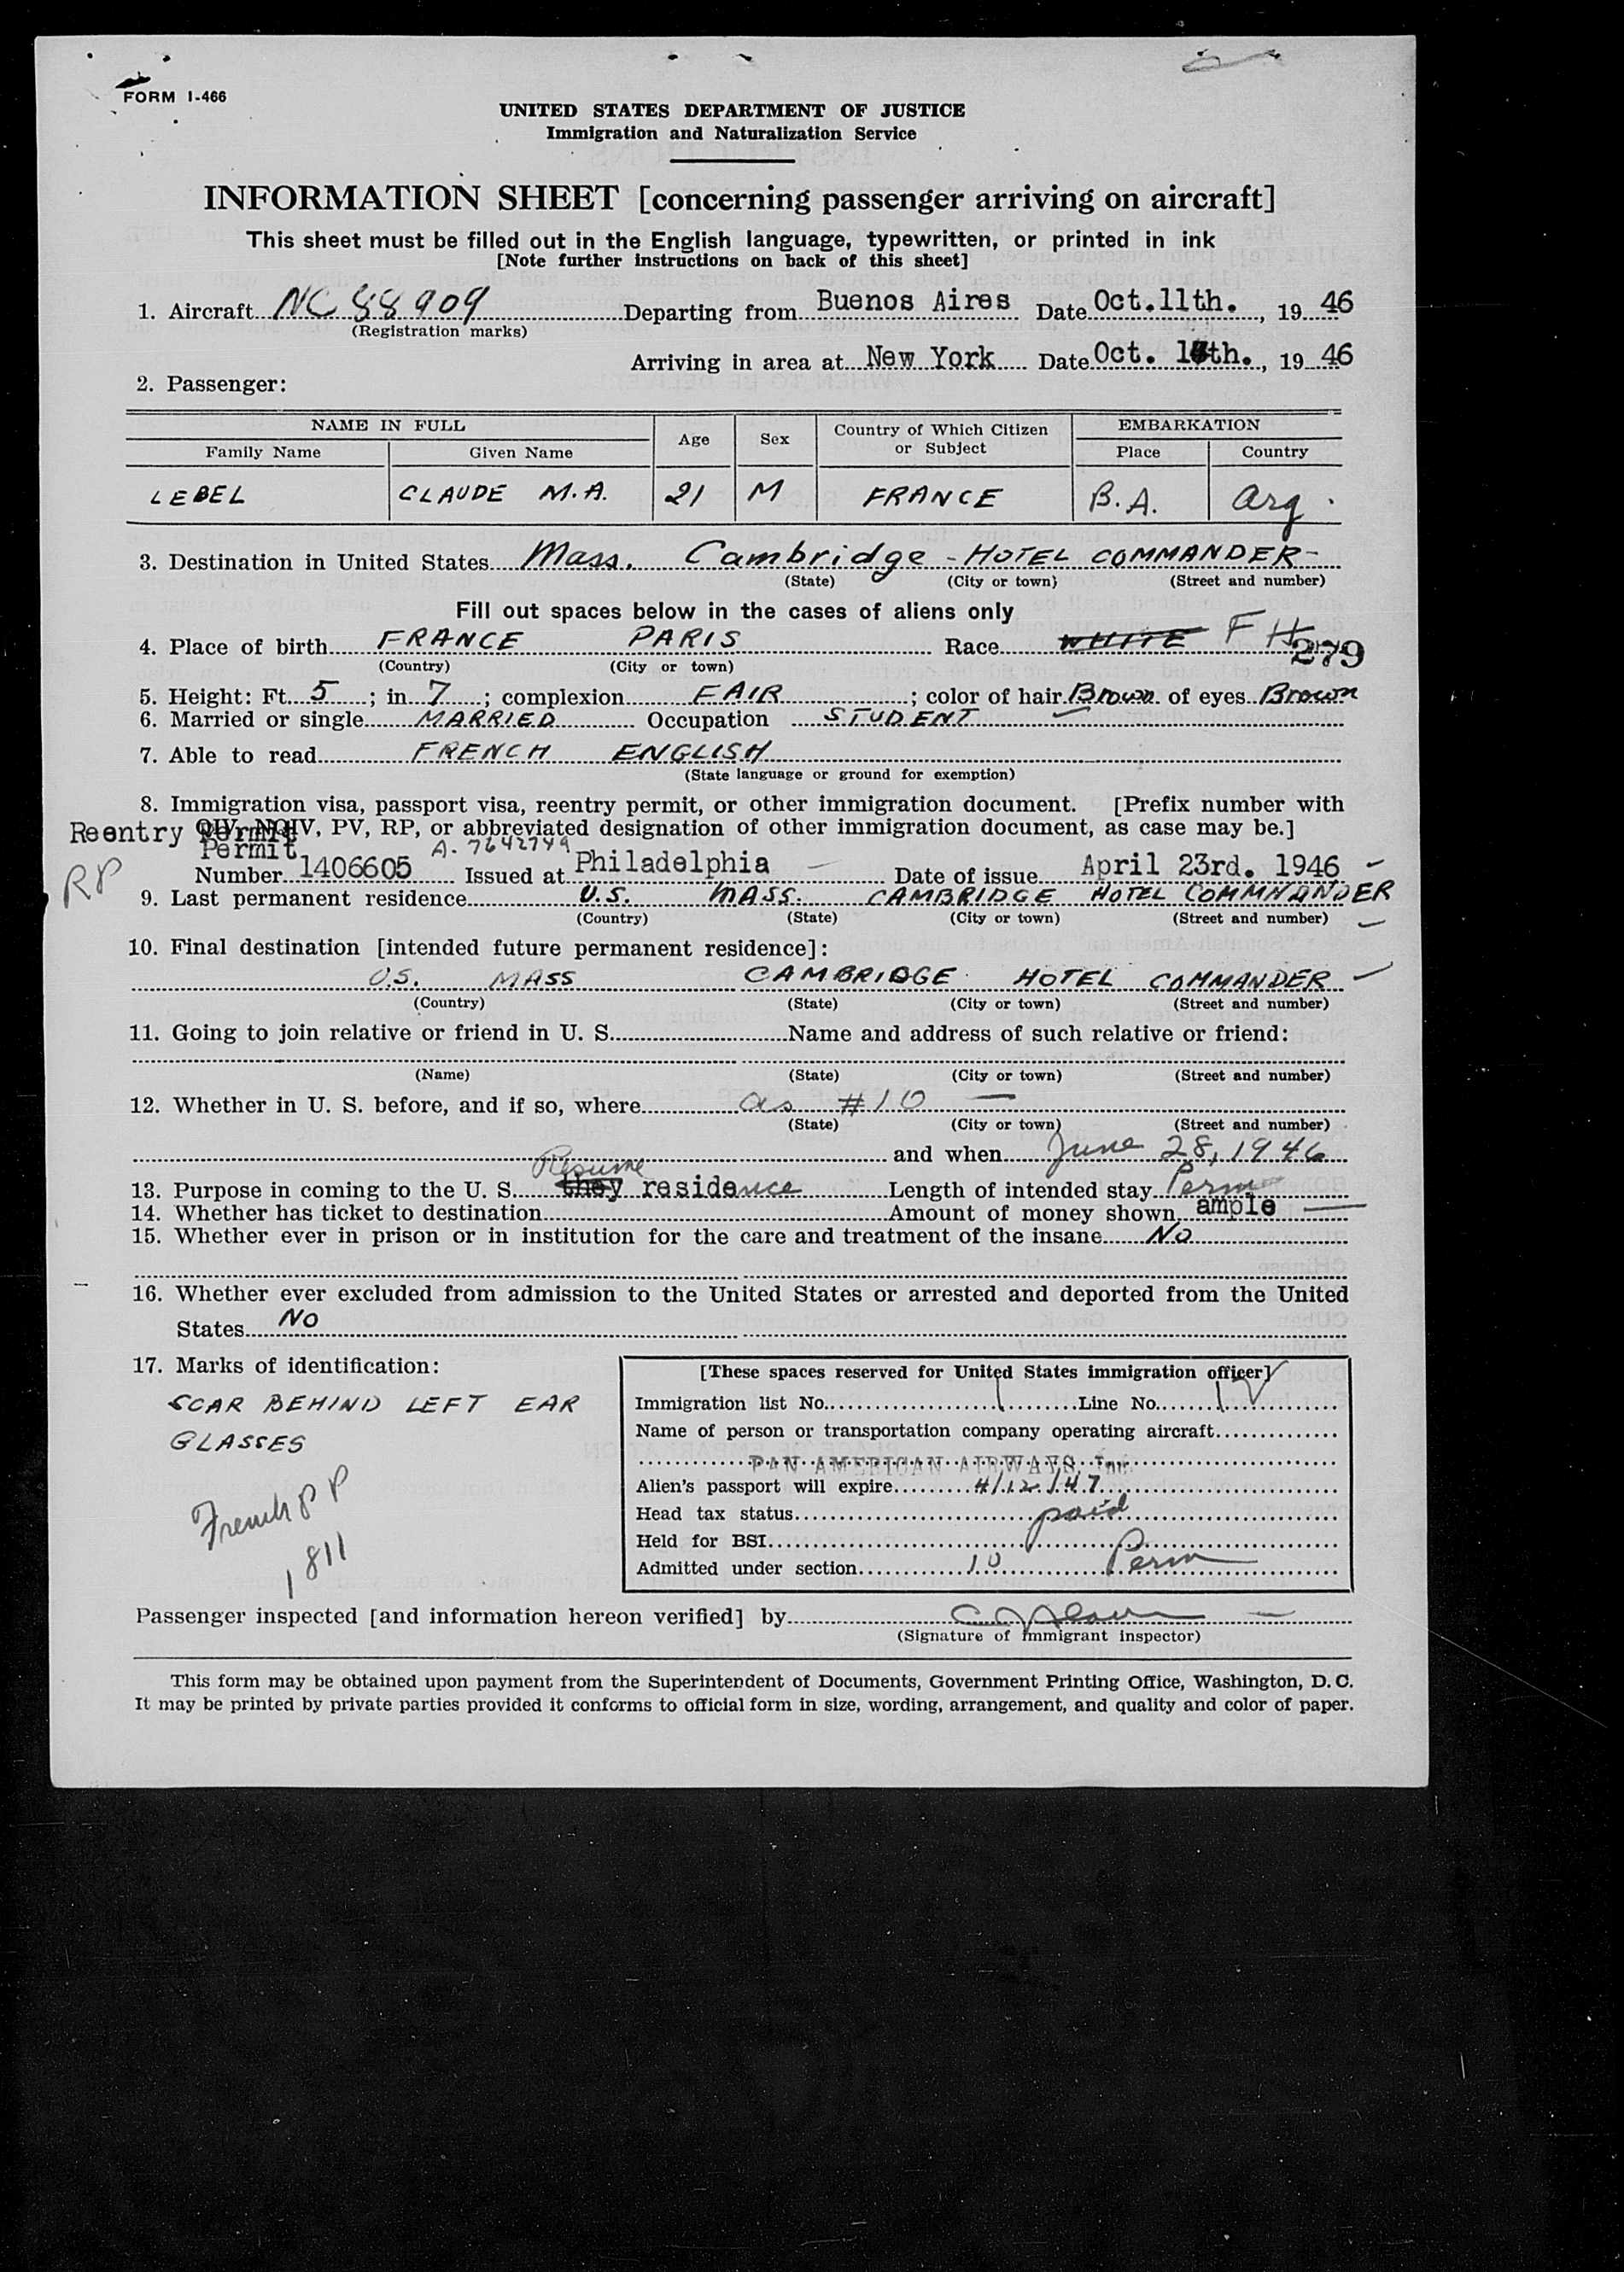 FORM I-466
UNITED STATES DEPARTMENT OF JUSTICE
Immigration and Naturalization Service
INFORMATION SHEET [concerning passenger arriving on aircraft]
This sheet must be filled out in the English language, typewritten, or printed in ink
[Note further instructions on back of this sheet]
1. Aircraft NC 88909 Departing from Buenos Aires Date Oct.11th., 19 46
(Registration marks)
Arriving in area at New York Date Oct. th., 19 46
2. Passenger:
NAME IN FULL Age Sex Country of Which Citizen or Subject EMBARKATION
Family Name Given Name Place Country
LEBEL CLAUDE M.A. 21 M FRANCE B.A. Arg.
3. Destination in United States Mass. Cambridge - HOTEL COMMANDER -
(State) (City or town) (Street and number)
Fill out spaces below in the cases of aliens only
4. Place of birth FRANCE PARIS Race WHITE F H 279
(Country) (City or town)
5. Height: Ft. 5 ; in. 7 ; complexion FAIR ; color of hair Brown of eyes Brown
6. Married or single MARRIED Occupation STUDENT
7. Able to read FRENCH ENGLISH
(State language or ground for exemption)
8. Immigration visa, passport visa, reentry permit, or other immigration document. [Prefix number with
Reentry Permit QIV, NQIV, PV, RP, or abbreviated designation of other immigration document, as case may be.]
Permit A-7642749
RP Number 1406605 Issued at Philadelphia Date of issue April 23rd. 1946
9. Last permanent residence U.S. MASS. CAMBRIDGE HOTEL COMMANDER
(Country) (State) (City or town) (Street and number)
10. Final destination [intended future permanent residence]:
U.S. MASS CAMBRIDGE HOTEL COMMANDER
(Country) (State) (City or town) (Street and number)
11. Going to join relative or friend in U. S. Name and address of such relative or friend:
(Name) (State) (City or town) (Street and number)
12. Whether in U. S. before, and if so, where as #10
(State) (City or town) (Street and number)
and when June 28, 1946
Resume
13. Purpose in coming to the U. S. they residence Length of intended stay Perm
14. Whether has ticket to destination Amount of money shown ample
15. Whether ever in prison or in institution for the care and treatment of the insane No
16. Whether ever excluded from admission to the United States or arrested and deported from the United
States No
17. Marks of identification:
SCAR BEHIND LEFT EAR
GLASSES
French PP
1811
[These spaces reserved for United States immigration officer]
Immigration list No. 1 Line No. 1
Name of person or transportation company operating aircraft
PAN AMERICAN AIRWAYS, Inc.
Alien's passport will expire 4/12/47
Head tax status paid
Held for BSI
Admitted under section 10 Perm
Passenger inspected [and information hereon verified] by
(Signature of immigrant inspector)
This form may be obtained upon payment from the Superintendent of Documents, Government Printing Office, Washington, D. C.
It may be printed by private parties provided it conforms to official form in size, wording, arrangement, and quality and color of paper.